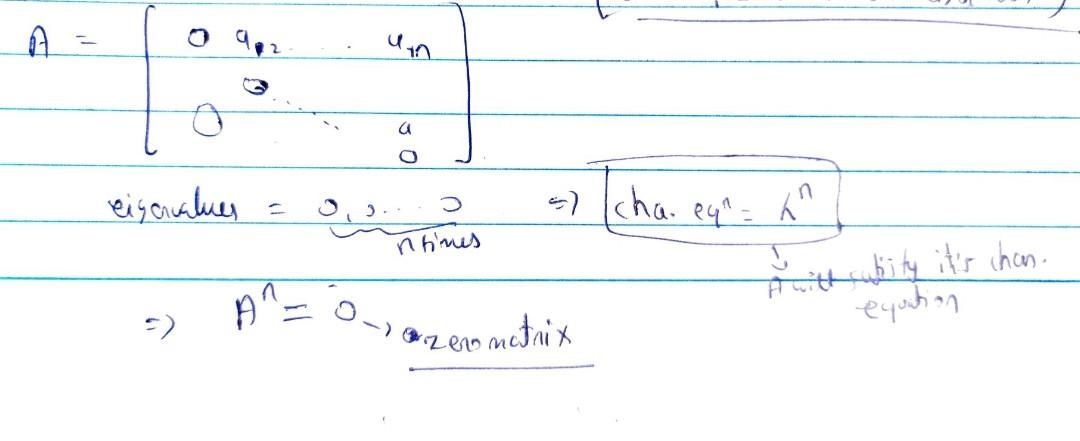 A = [ 0 a₁₂ . . . . a₁ₙ
0 . . . .
0 a
0 ]
eigenvalues = 0, 0 . . . 0 ⇒ cha. eqⁿ = λⁿ
n times
A will satisfy it's chan. equation
⇒ Aⁿ = 0 → zero matrix